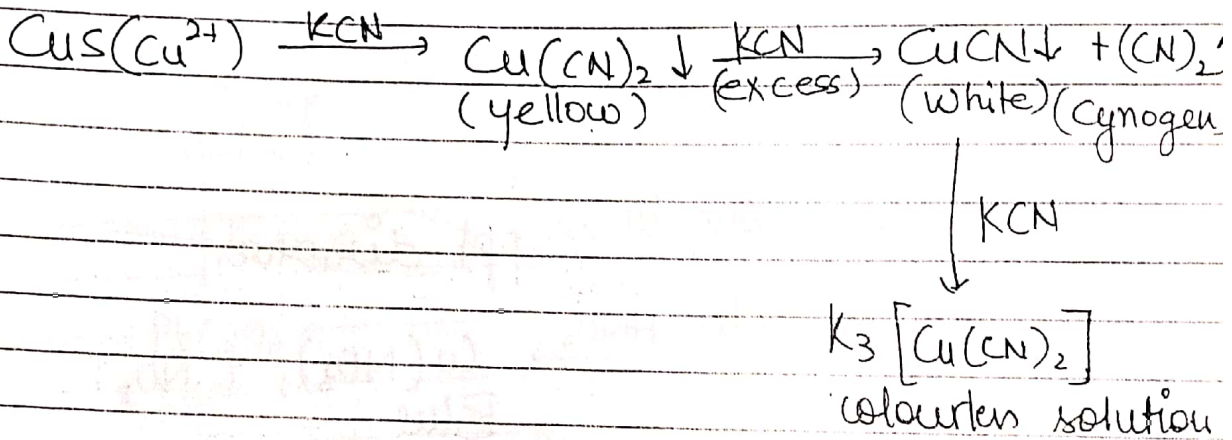 CuS(Cu²⁺) —KCN→ Cu(CN)₂ ↓ —KCN (excess)→ CuCN↓ + (CN)₂↑
(yellow) (white) (Cynogen
↓ KCN
K₃ [Cu(CN)₂]
colourless solution